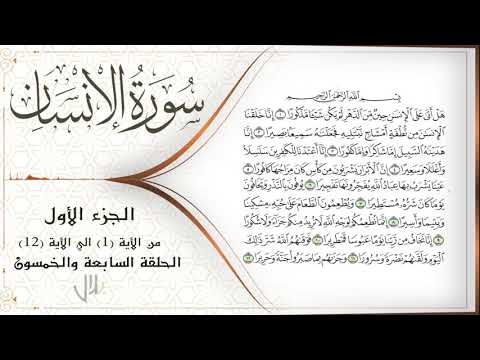 سُورَةُ الإِنسَان
الجزء الأول
من الآية (1) الى الآية (12)
الحلقة السابعة والخمسون
بِسْمِ ٱللَّهِ ٱلرَّحْمَٰنِ ٱلرَّحِيمِ
هَلْ أَتَىٰ عَلَى ٱلْإِنسَٰنِ حِينٌ مِّنَ ٱلدَّهْرِ لَمْ يَكُن شَيْـًٔا مَّذْكُورًا ۝١ إِنَّا خَلَقْنَا
ٱلْإِنسَٰنَ مِن نُّطْفَةٍ أَمْشَاجٍ نَّبْتَلِيهِ فَجَعَلْنَٰهُ سَمِيعًۢا بَصِيرًا ۝٢ إِنَّا
هَدَيْنَٰهُ ٱلسَّبِيلَ إِمَّا شَاكِرًا وَإِمَّا كَفُورًا ۝٣ إِنَّآ أَعْتَدْنَا لِلْكَٰفِرِينَ سَلَٰسِلَا۟
وَأَغْلَٰلًا وَسَعِيرًا ۝٤ إِنَّ ٱلْأَبْرَارَ يَشْرَبُونَ مِن كَأْسٍ كَانَ مِزَاجُهَا كَافُورًا ۝٥
عَيْنًا يَشْرَبُ بِهَا عِبَادُ ٱللَّهِ يُفَجِّرُونَهَا تَفْجِيرًا ۝٦ يُوفُونَ بِٱلنَّذْرِ وَيَخَافُونَ
يَوْمًا كَانَ شَرُّهُۥ مُسْتَطِيرًا ۝٧ وَيُطْعِمُونَ ٱلطَّعَامَ عَلَىٰ حُبِّهِۦ مِسْكِينًا
وَيَتِيمًا وَأَسِيرًا ۝٨ إِنَّمَا نُطْعِمُكُمْ لِوَجْهِ ٱللَّهِ لَا نُرِيدُ مِنكُمْ جَزَآءً وَلَا شُكُورًا
۝٩ إِنَّا نَخَافُ مِن رَّبِّنَا يَوْمًا عَبُوسًا قَمْطَرِيرًا ۝١٠ فَوَقَىٰهُمُ ٱللَّهُ شَرَّ ذَٰلِكَ
ٱلْيَوْمِ وَلَقَّىٰهُمْ نَضْرَةً وَسُرُورًا ۝١١ وَجَزَىٰهُم بِمَا صَبَرُوا۟ جَنَّةً وَحَرِيرًا ۝١٢